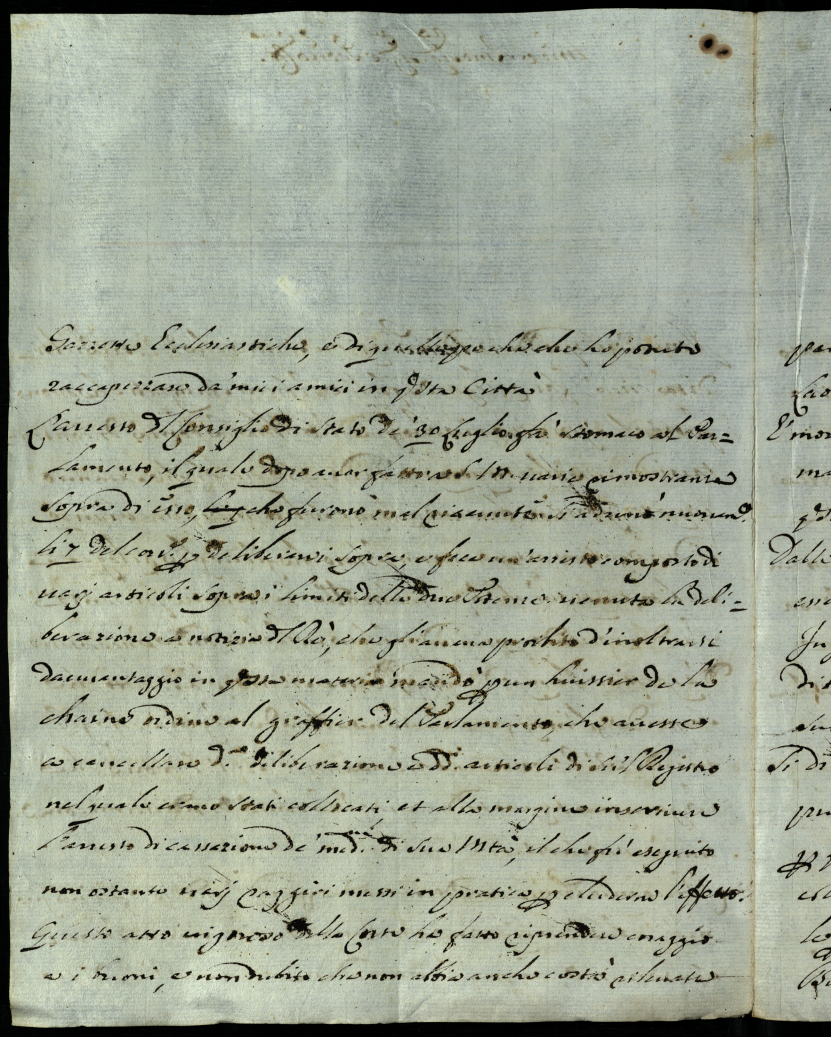 Gazzette Ecclesiastiche, e di che che ho potuto
raccapezzare da' miei amici in qsta Città
L'arresto dl Consiglio di Stato de' 30 Luglio ghe' stomaco al Par=
lamento, il quale dopo aver fatto a S. M. varie rimostranze
sopra di esso, che furono mal ricevute s'adunò nuovam.e
li 7 del corr. p deliberarvi sopra, e fece un' arresto composto di
varj articoli sopra i limiti delle due Potenze. venuta la deli=
berazione a notizia dl Rè, che gli aveva proibito d'inoltrarsi
davvantaggio in qsta materia mandò p un huissier de la
chaine ordine al greffier del Parlamento, che avesse
a cancellare d.a deliberazione e dd. articoli di sul Registro
nel quale erano stati collocati, et alla margine inserivere
l'arresto di cassazione de' med. di Sua Mtà, il che fù eseguito
non ostante varj raggiri messi in pratica p eluderne l'effetto.
Questo atto vigoroso della Corte ha fatto riprendere coraggio
a i buoni, e non dubito che non abbia anche costà rilevate
par
E' mor
ma
Dalle
di
Ti di